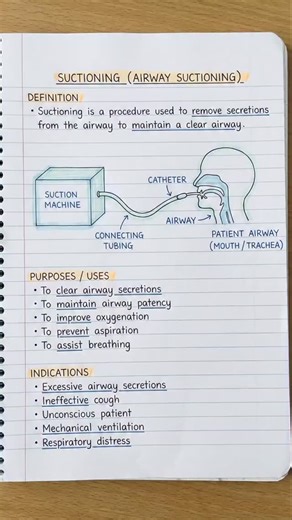 SUCTIONING (AIRWAY SUCTIONING)
DEFINITION
• Suctioning is a procedure used to remove secretions
from the airway to maintain a clear airway.
SUCTION
MACHINE
CATHETER
CONNECTING
TUBING
AIRWAY
PATIENT AIRWAY
(MOUTH/TRACHEA)
PURPOSES / USES
• To clear airway secretions
• To maintain airway patency
• To improve oxygenation
• To prevent aspiration
• To assist breathing
INDICATIONS
• Excessive airway secretions
• Ineffective cough
• Unconscious patient
• Mechanical ventilation
• Respiratory distress